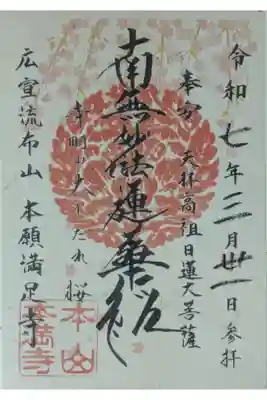 令和七年三月卅一日参拝
奉分 天拝高祖日蓮大菩薩
南無妙法蓮華経
寺明の大しだれ桜
広宣流布山 本願満足寺
本山
本満寺